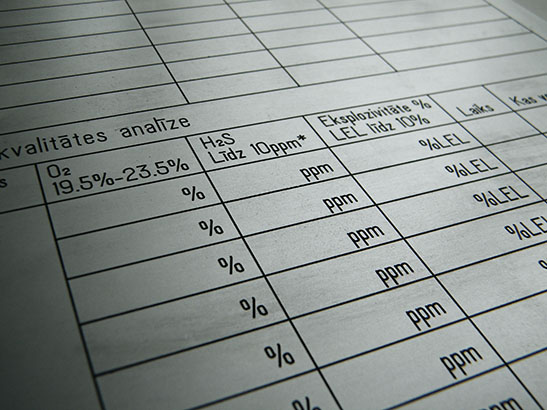 kvalitātes analīze
O2
19.5%-23.5%
H2S
Līdz 10ppm*
Eksplozivitāte %
LEL līdz 10%
Laiks
Kas
% ppm %LEL
% ppm %LEL
% ppm %LEL
% ppm %LEL
% ppm
% ppm